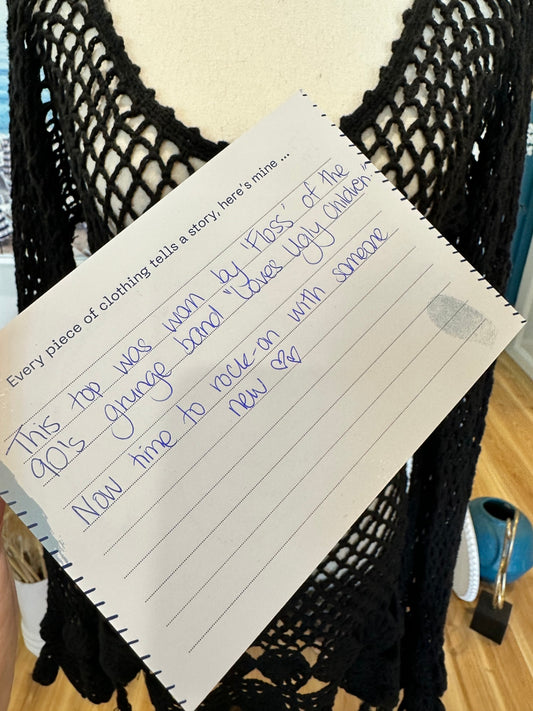 Every piece of clothing tells a story, here's mine ...
This top was worn by 'Floss' of the
90's grunge band "Loves Ugly Children"
Now time to rock-on with someone
new ♡♡